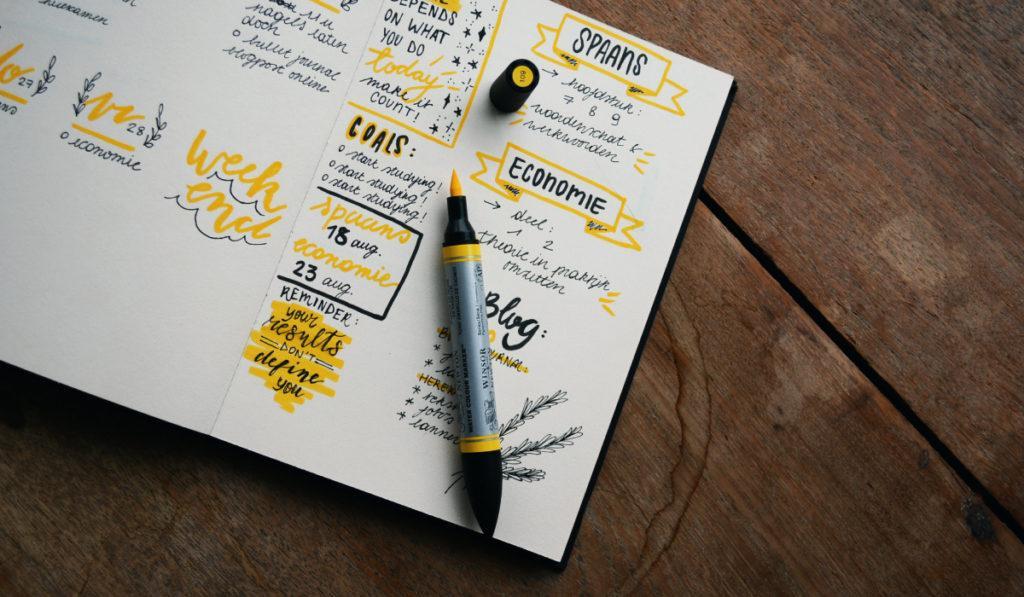 nagels laten
doch
o bullet journal
blogpost online
27
28
o economie
Week
end
DEPENDS
ON WHAT
YOU DO
today
make it
COUNT!
GOALS:
o start studying!
o start studying!
o start studying!
spaans
18 aug.
economie
23 aug.
REMINDER:
your
results
DON'T
define
you
SPAANS
→ hoofdstuk:
7 8 9
woordenschat &
werkwoorden
ECONOMIE
→ deel:
1 2
theorie in praktijk
omzetten
Blog:
109
WATER COLOUR MARKER
WINSOR